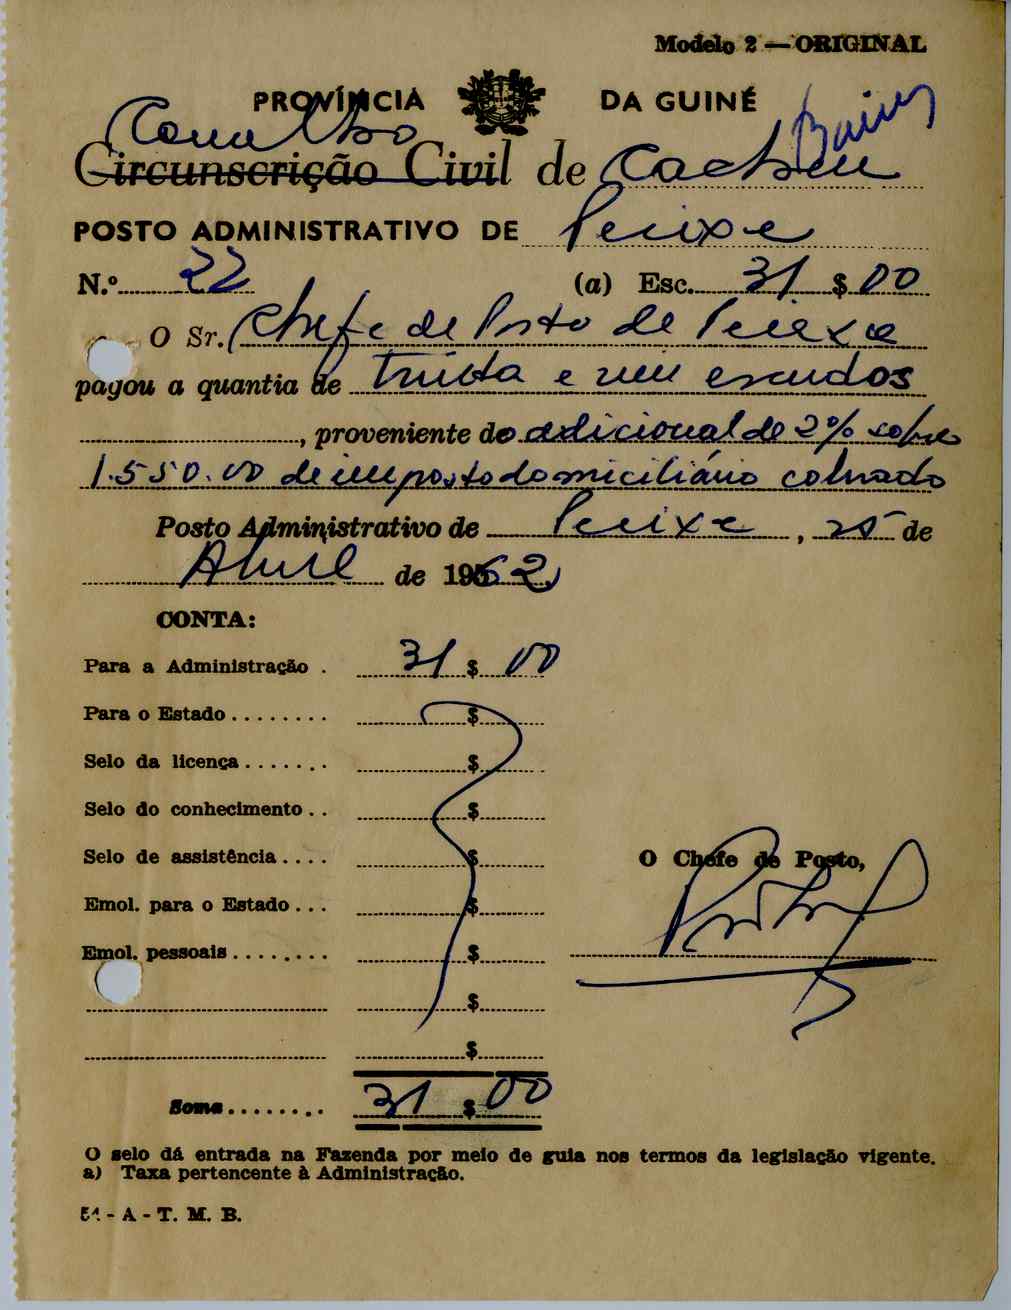 Modelo 2 — ORIGINAL
PROVÍNCIA DA GUINÉ
Concelho
Circunscrição Civil de Cacheu
POSTO ADMINISTRATIVO DE Pecixe
N.º 22 (a) Esc. 31 $ 00
O Sr. Chefe de Posto de Pecixe
pagou a quantia de Trinta e um escudos
, proveniente do adicional de 2% sobre
1.550.00 de imposto domiciliário cobrado
Posto Administrativo de Pecixe, 25 de
Abril de 1962
CONTA:
Para a Administração . 31 $ 00
Para o Estado ........ $
Selo da licença ....... $
Selo do conhecimento .. $
Selo de assistência .... $
O Chefe de Posto,
Emol. para o Estado ... $
Emol. pessoais ........ $
$
$
Soma ........ 31 $ 00
O selo dá entrada na Fazenda por meio de guia nos termos da legislação vigente.
a) Taxa pertencente à Administração.
54 - A - T. M. B.